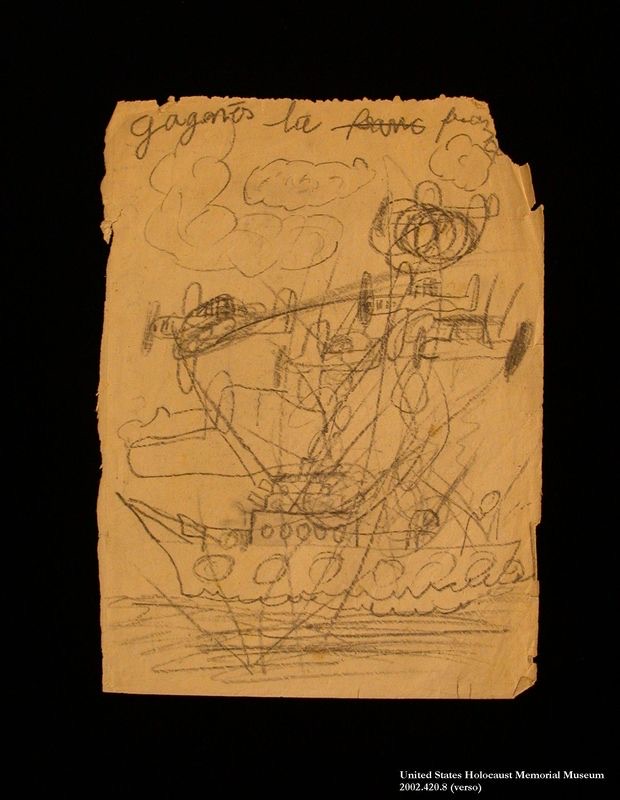 gagnés la
United States Holocaust Memorial Museum
2002.420.8 (verso)